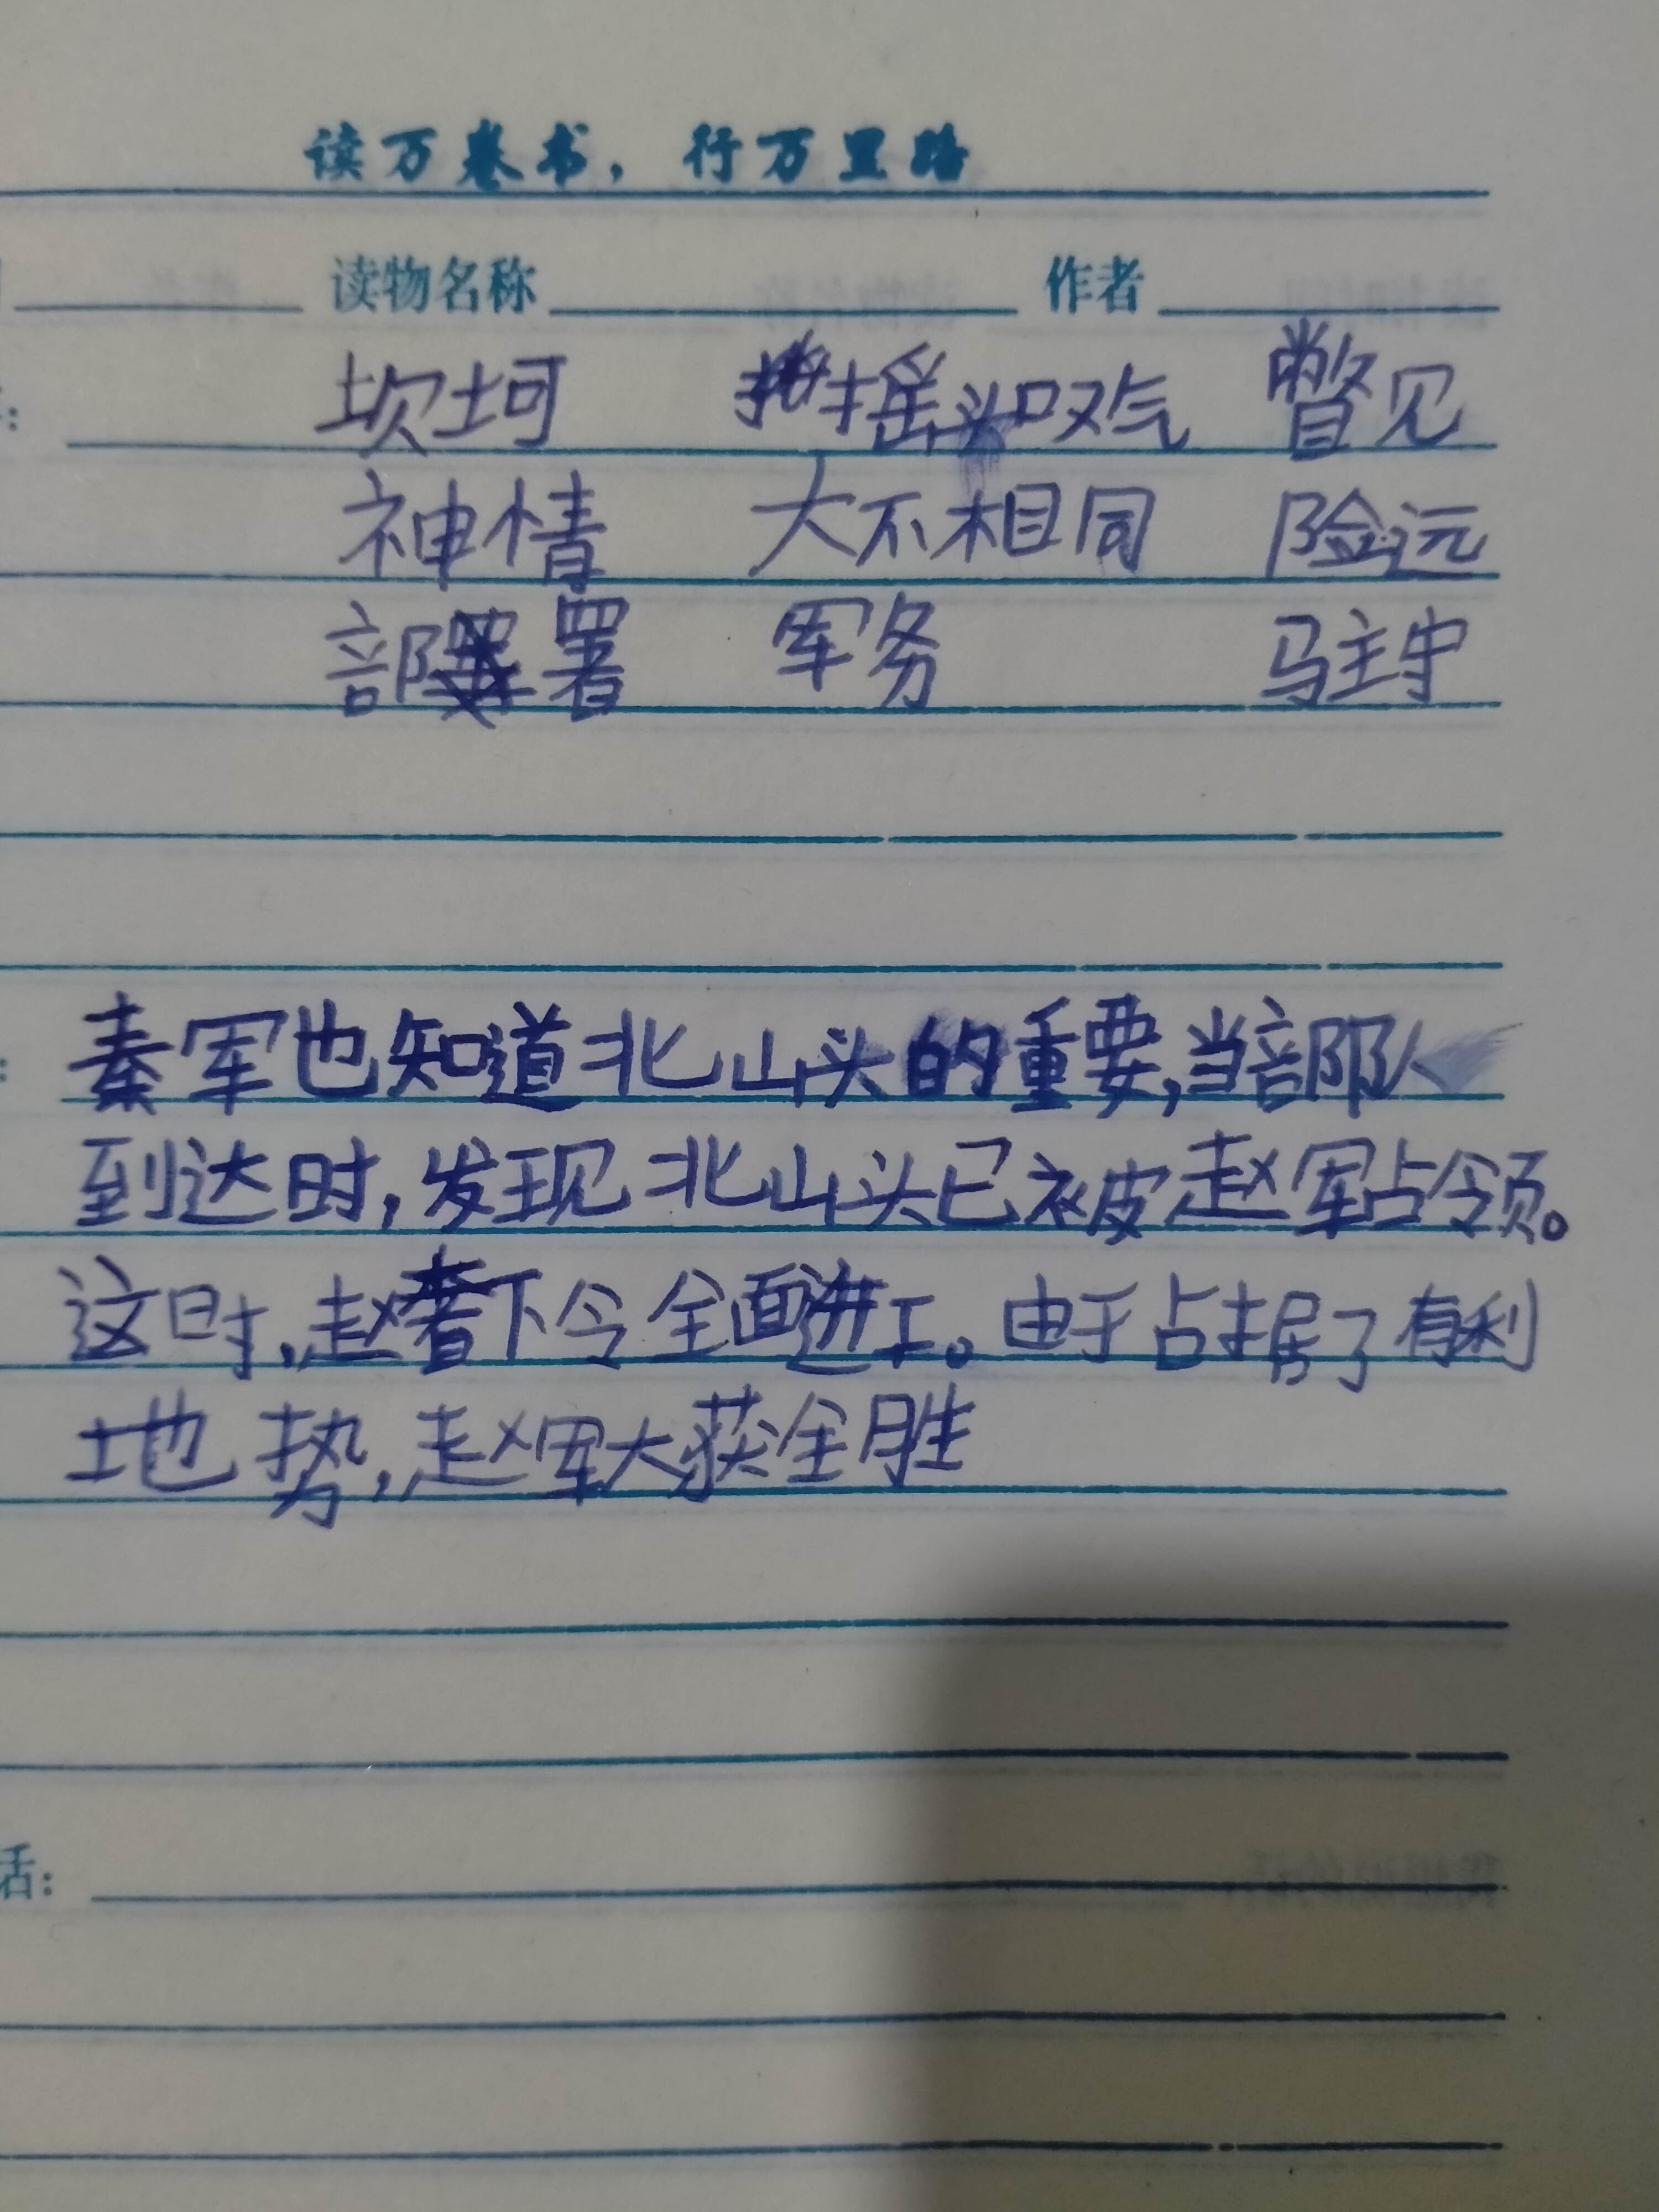 读万卷书，行万里路
读物名称 作者
坎坷 摇头叹气 瞥见
神情 大不相同 险远
部署 军务 驻守
秦军也知道北山头的重要，当部队
到达时，发现北山头已被赵军占领。
这时，赵奢下令全面进工。由于占据了有利
地势，赵军大获全胜
话：